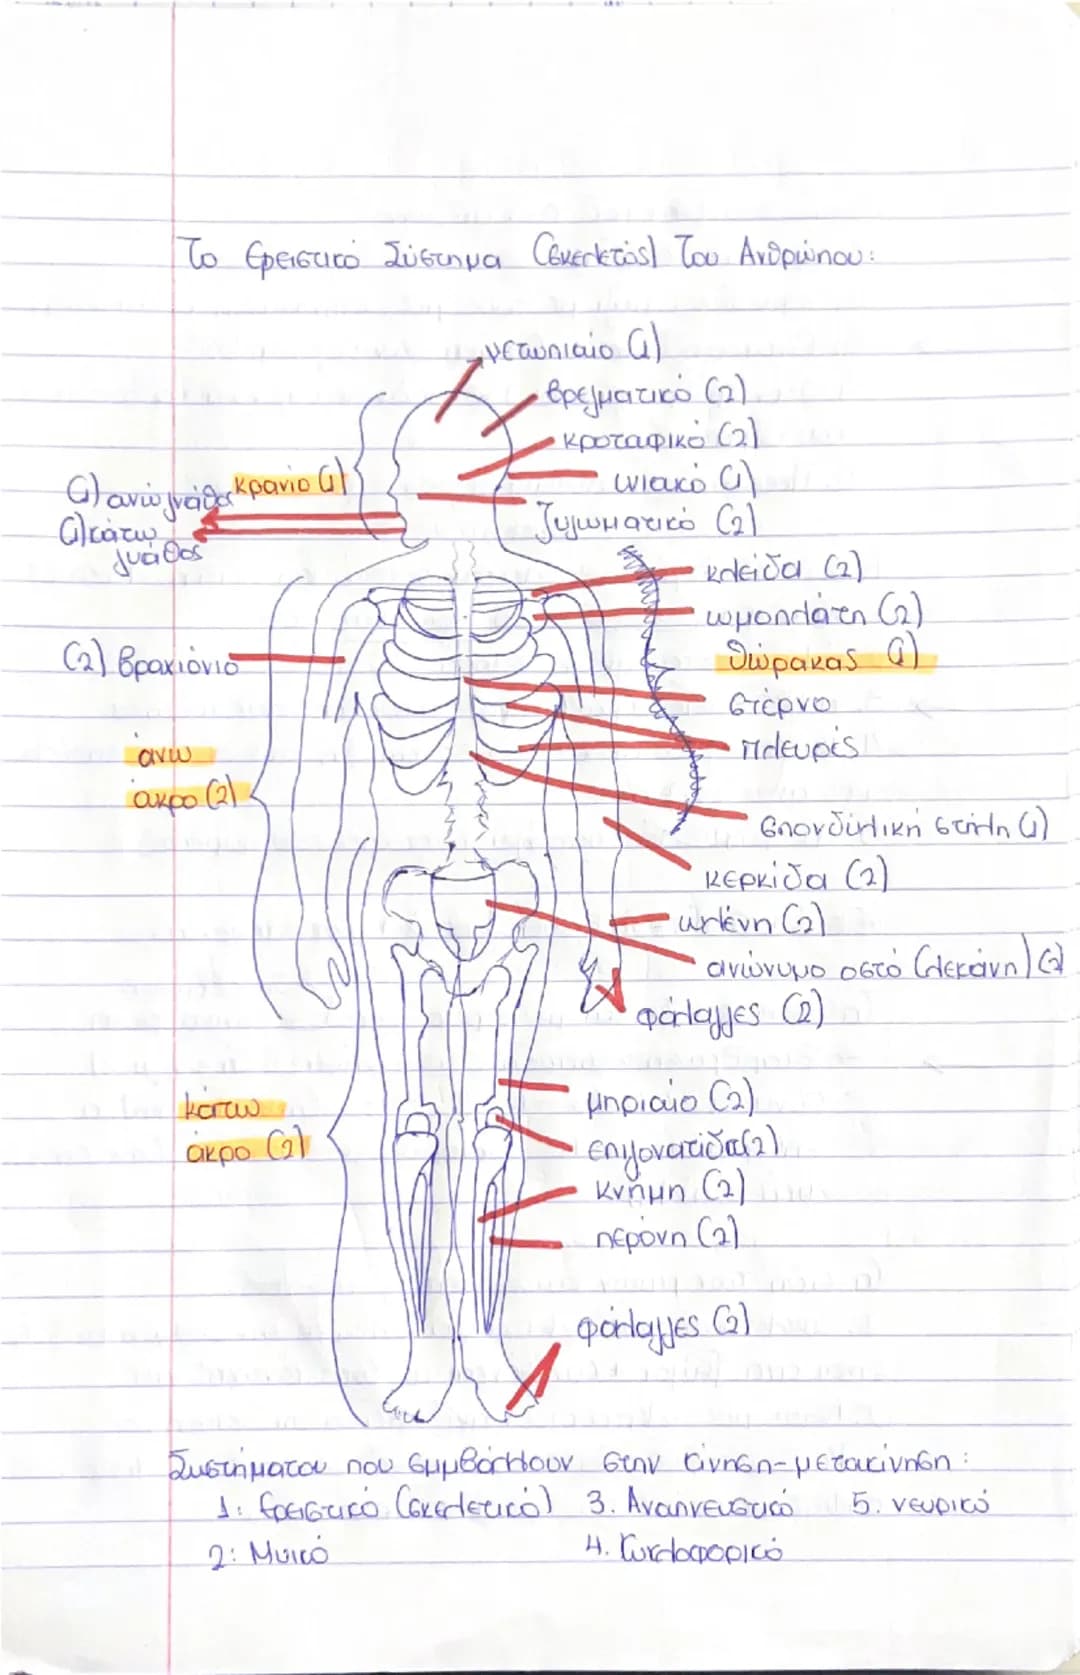 Το Ερειστικό Σύστημα (σκελετός) Του Ανθρώπου:
μετωπιαίο (1)
βρεγματικό (2)
κροταφικό (2)
(1) άνω γνάθο κρανίο (1) ινιακό (1)
(1) κάτω γνάθος
ζυγωματικό (2)
κλείδα (2)
ωμοπλάτη (2)
(2) βραχιόνιο
θώρακας (1)
στέρνο
πλευρές
άνω
άκρο (2)
σπονδυλική στήλη (1)
κερκίδα (2)
ωλένη (2)
ανώνυμο οστό (λεκάνη) (2)
φάλαγγες (2)
κάτω
άκρο (2)
μηριαίο (2)
επιγονατίδα (2)
κνήμη (2)
περόνη (2)
φάλαγγες (2)
Συστήματα που συμβάλλουν στην κίνηση-μετακίνηση:
1: Ερειστικό (σκελετικό) 3. Αναπνευστικό 5. νευρικό
2: Μυικό 4. Κυκλοφορικό